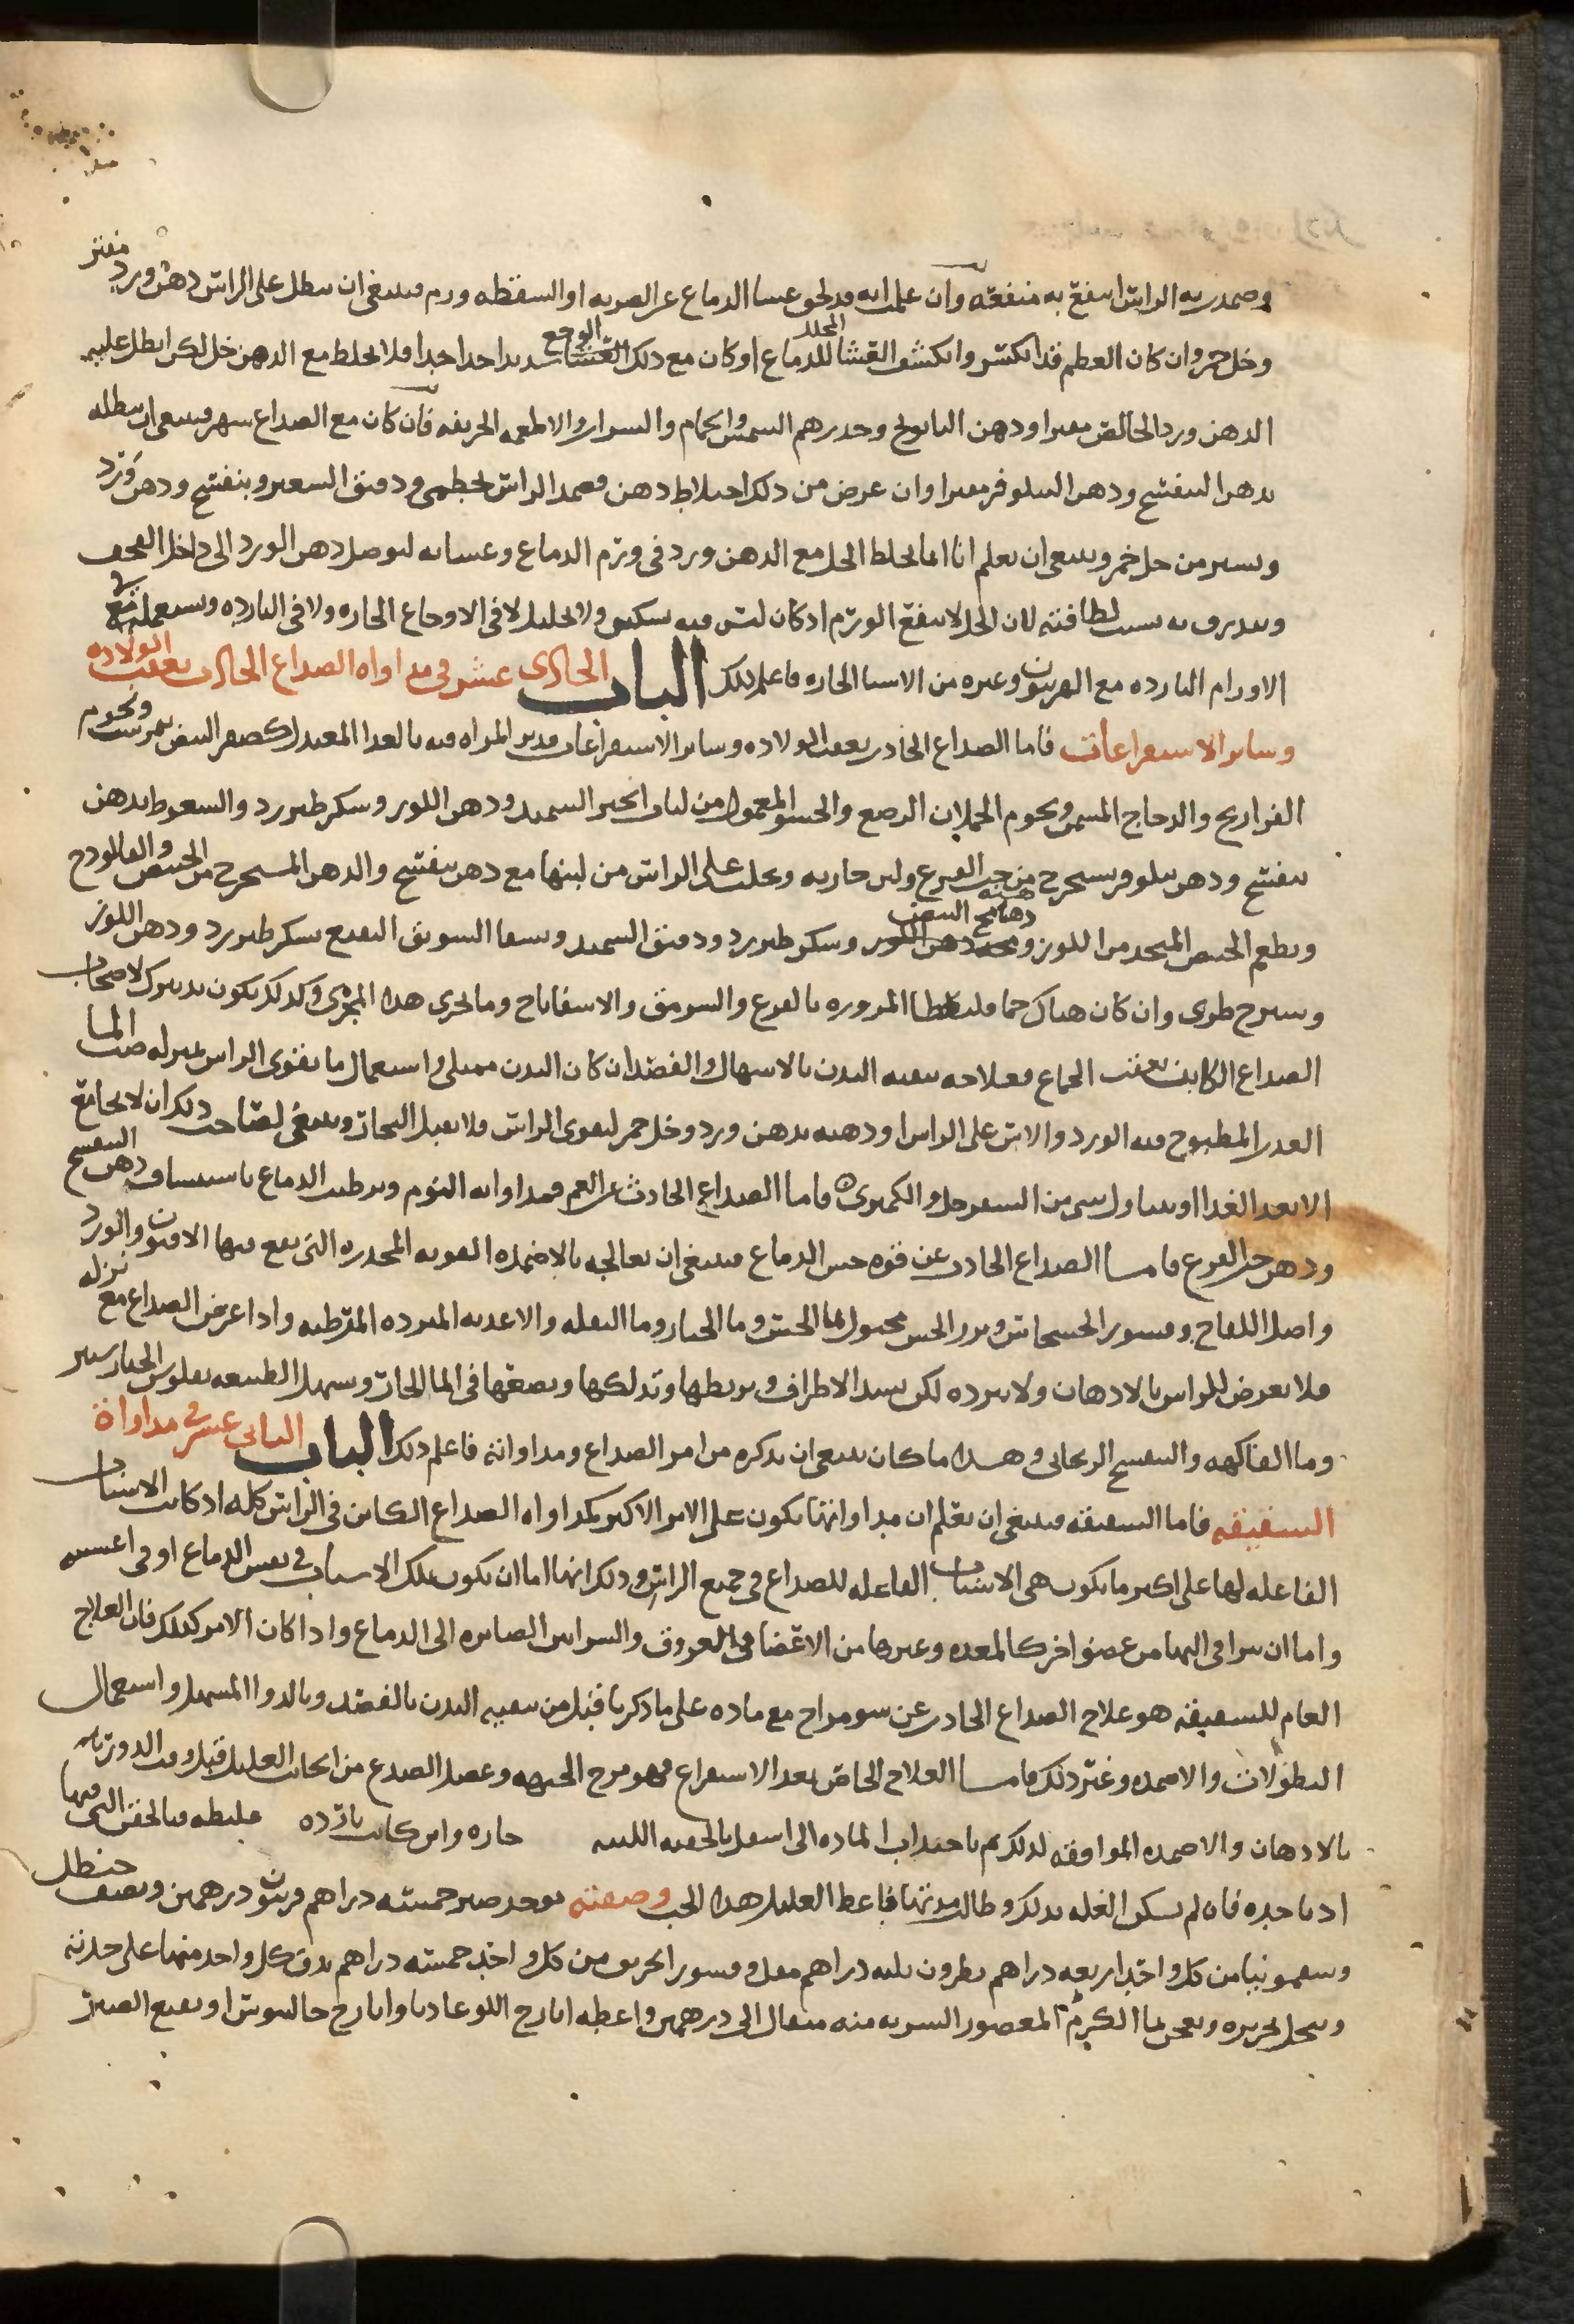 وضمد به الراس انتفع به منفعة وان علمت انه قد لحق غشا الدماغ عن الضربه او السقطه ورم فينبغي ان ينطل على الراس دهن ورد مفتر
وخل خمر وان كان العظم قد انكسر وانكشف الغشا المجلل للدماغ او كان مع ذلك الوجع شديدا حدا جدا فلا تخلط مع الدهن خل لكن انطل عليه
الدهن ورد الخالص مفترا ودهن البابونج وحذرهم الشمس والحمام والشراب والاطعمه الحريفه فان كان مع الصداع سهر فينبغي ان ينطله
بدهن البنفسج ودهن النيلوفر مفترا وان عرض من ذلك اختلاط ذهن فضمد الراس بخطمي ودقيق الشعير وبنفسج ودهن ورد
ويسير من خل خمر وينبغي ان تعلم انا انما نخلط الخل مع الدهن ورد في ورم الدماغ وغشايه ليوصل دهن الورد الى داخل القحف
وتدرقه بسبب لطافته لان الخل لا ينفع الورم اذ كان ليس فيه تسكين ولا تحليل لا في الاوجاع الحاره ولا في البارده ونستعمله مع
الاورام البارده مع الفربيون وغيره من الاشيا الحاره فاعلم ذلك الباب الحادي عشر في مداواه الصداع الحادث بعقب الولاده
وساير الاستفراغات فاما الصداع الحادث بعقب الولاده وساير الاستفراغات فدبر المراه فيه بالغدا المعتدل كصفر البيض نمرشت ولحوم
الفراريج والدجاج المسمن ولحوم الحملان الرضع والحسو المعمول من لباب الخبز السميد ودهن اللوز وسكر طبرزد والسعوط بدهن
بنفسج ودهن نيلوفر مستخرج من حب القرع ولبن جاريه ويحلب على الراس من لبنها مع دهن بنفسج والدهن المستخرج من الخبيص والفالوذج
ويطعم الخبيص المتخذ من اللوز ومخه دهن اللوز وسكر طبرزد ودقيق السميد ويسقا السويق النقيع بسكر طبرزد ودهن اللوز
وسيرج طري وان كان هناك حما فليعطا المزوره بالقرع والسرمق والاسفاناخ وما يجري هذا المجرى وكذلك يكون تدبيرك لاصحاب
الصداع الكاين بعقب الجماع فعلاجه بنقيه البدن بالاسهال والفصد ان كان البدن ممتلي واستعمال ما يقوي الراس بمنزله صب الما
العذب المطبوخ فيه الورد والاس على الراس او دهنه بدهن ورد وخل خمر ليقوى الراس فلا يقبل البخار وينبغي لصاحب ذلك ان لا يجامع
الا بعد الغدا او يتناول شي من السفرجل والكمثرى فاما الصداع الحادث عن الغم فمداواته النوم وترطيب الدماغ باستنشاق دهن البنفسج
ودهن حب القرع فاما الصداع الحادث عن قوه حس الدماغ فينبغي ان تعالجه بالاضمده القويه المخدره التي يقع فيها الافيون والورد
واصل اللفاح وقشور الخشخاش وبزر الخس معجون بما الخس وما الخيار وما البقله والاغديه المبرده المرطبه واذا عرض الصداع مع نزله
فلا تعرض للراس بالادهان ولا تبرده لكن بشد الاطراف وبربطها وتدلكها وبضعها في الما الحار وتسهل الطبيعه بفلوس الخيار شنبر
وما الفاكهه والبنفسج الريحاني وهذا ما كان ينبغي ان نذكره من امر الصداع ومداواته فاعلم ذلك الباب الثاني عشر في مداواة
الشقيقه فاما الشقيقه فينبغي ان تعلم ان مداواتها تكون على الامر الاكثر كمداواه الصداع الكاين في الراس كله اذ كانت الاسباب
الفاعله لها على اكثر ما يكون هي الاسباب الفاعله للصداع في جميع الراس وذلك انها اما ان تكون تلك الاسباب في نفس الدماغ او في اغشيه
واما ان تتراقى اليها من عضو اخر كالمعده وغيرها من الاعضا في العروق والشرايين الصايره الى الدماغ واذا كان الامر كذلك فان العلاج
العام للشقيقه هو علاج الصداع الحادث عن سو مزاج مع ماده على ما ذكرنا قبل من تنقيه البدن بالفصد وبالدوا المسهل واستعمال
النطولات والاضمده وغير ذلك فاما العلاج الخاص بعد الاستفراغ فهو مرخ الجبهه وعضل الصدغ من الجانب العليل قبل وقت الدور
بالادهان والاضمده الموافقه لذلك ثم باجتذاب الماده الى اسفل بالحقنه اللينه حاره وان كانت بارده غليظه فبالحقن التي فيها
ادنا حده فان لم تسكن العله بذلك وطالت مدتها فاعط العليل هذا الحب وصفته يوخذ صبر خمسه دراهم فربيون درهمين ونصف حنظل
وسقمونيا من كل واحد اربعه دراهم نطرون ثلثه دراهم مقل وقشور الخربق من كل واحد خمسه دراهم يدق كل واحد منها على حدته
وينخل بحريره ويعجن بما الكرم المعصور الشربه منه مثقال الى درهمين واعطه ايارج اللوغاديا وايارج جالينوس او نقيع الصبر